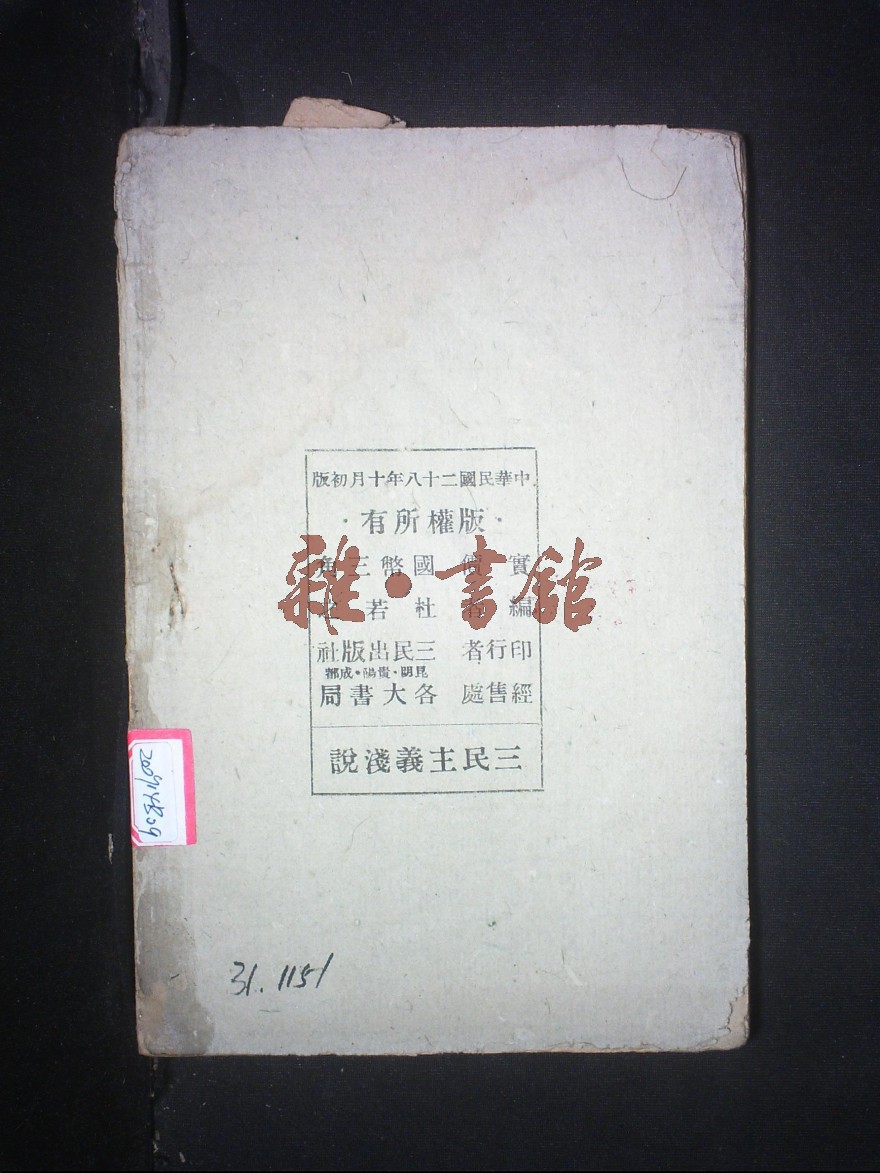 中華民國二十八年十月初版
·版權所有·
實價 國幣三角
編者 杜若
印行者 三民出版社
昆明·貴陽·成都
經售處 各大書局
三民主義淺說
雜·書館
31.1151